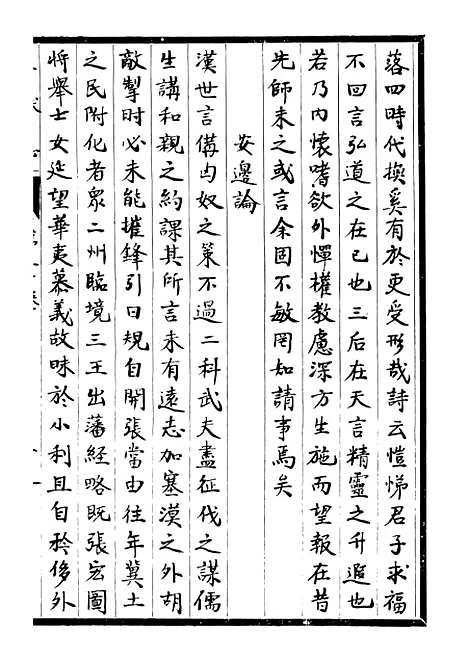 落四時代換奚有於更受形哉詩云愷悌君子求福
不回言弘道之在己也三后在天言精靈之升遐也
若乃內懷嗜欲外憚權教慮深方生施而望報在昔
先師未之或言余固不敏罔知請事焉矣
安邊論
漢世言備匈奴之策不過二科武夫盡征伐之謀儒
生講和親之約課其所言未有遠志加塞漠之外胡
敵掣肘必未能摧鋒引日規自開張當由往年冀土
之民附化者衆二州臨境三王出藩經略既張宏圖
將舉士女延望華夷慕義故昧於小利且自矜侈外